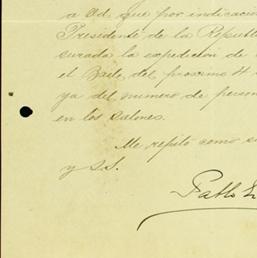 a Ud. que por indicació
Presidente de la Repúbl
surada la expedición de
el Baile del proximo 4
ya del numero de person
en los salones.
Me repito como su
y S.S.
Pablo